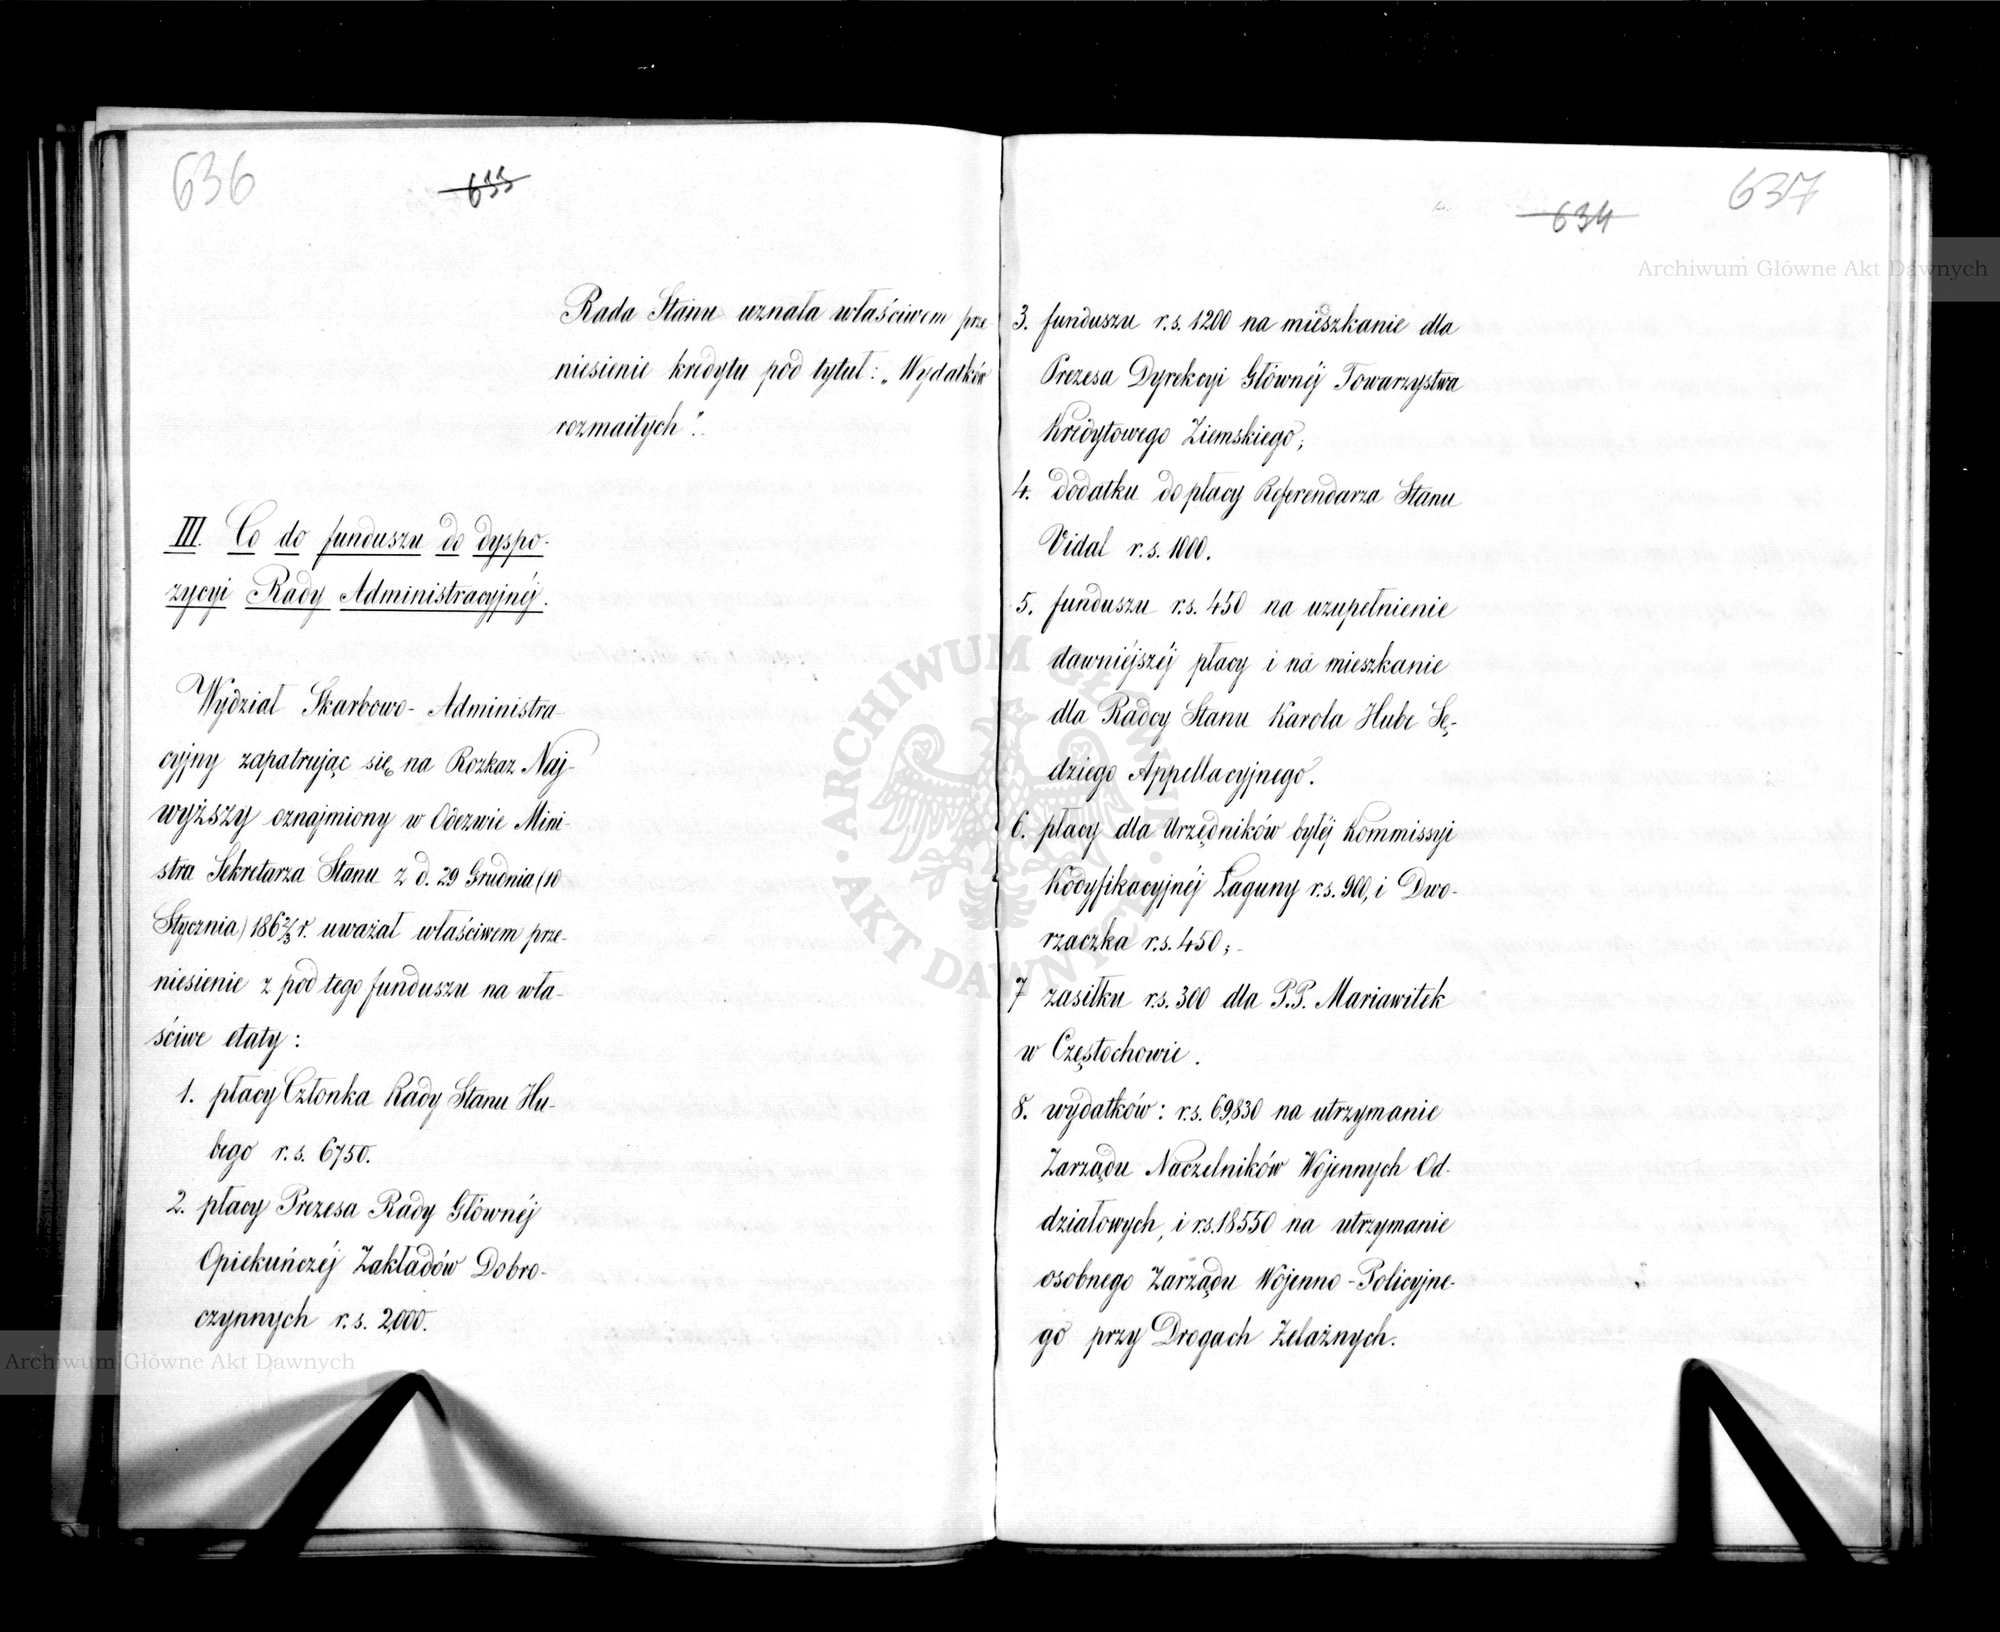 636
633
Rada Stanu uznała właściwem prze-
niesienie kredytu pod tytuł: „Wydatków
rozmaitych".
III. Co do funduszu do dyspo-
zycyi Rady Administracyjnéj.
Wydział Skarbowo-Administra-
cyjny zapatrując się na Rozkaz Naj-
wyższy oznajmiony w Odezwie Mini-
stra Sekretarza Stanu z d. 29 Grudnia (10
Stycznia) 186 2/3 r. uważał właściwem prze-
niesienie z pod tego funduszu na wła-
ściwe etaty:
1. płacy Członka Rady Stanu Hu-
bego r.s. 6750.
2. płacy Prezesa Rady Głównéj
Opiekuńczéj Zakładów Dobro-
czynnych r.s. 2,000.
637
634
3. funduszu r.s. 1200 na mieszkanie dla
Prezesa Dyrekcyi Głównéj Towarzystwa
Kredytowego Ziemskiego;
4. dodatku do płacy Referendarza Stanu
Vidal r.s. 1000.
5. funduszu r.s. 450 na uzupełnienie
dawniéjszéj płacy i na mieszkanie
dla Radcy Stanu Karola Hube Sę-
dziego Appellacyjnego.
6. płacy dla Urzędników byłéj Kommissyi
Kodyfikacyjnéj Łaguny r.s. 900, i Dwo-
rzaczka r.s. 450;
7 zasiłku r.s. 300 dla P.P. Mariawitek
w Częstochowie.
8. wydatków: r.s. 69,830 na utrzymanie
Zarządu Naczelników Wojennych Od-
działowych, i r.s. 18550 na utrzymanie
osobnego Zarządu Wojenno-Policyjne-
go przy Drogach Żelaznych.
Archiwum Główne Akt Dawnych
Archiwum Główne Akt Dawnych
ARCHIWUM GŁÓWNE
AKT DAWNYCH